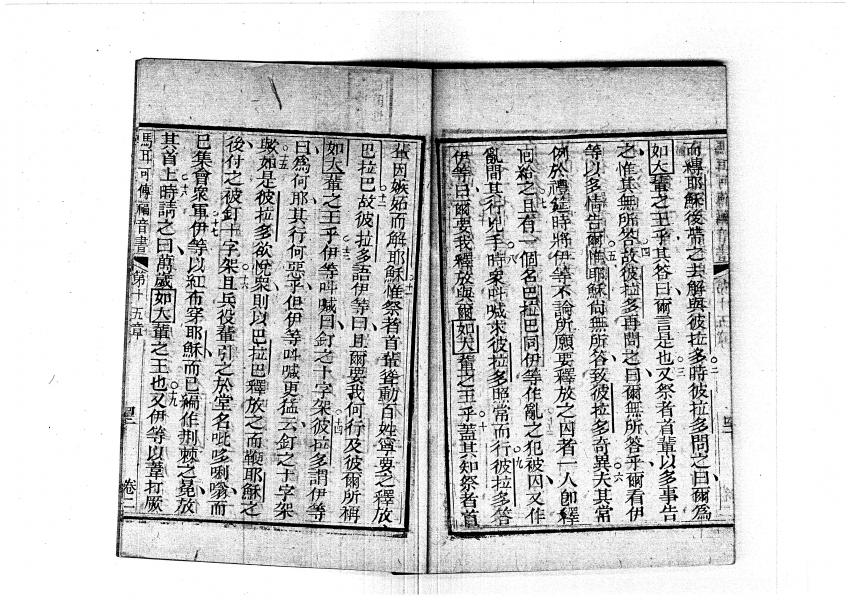 而縛耶穌後帶之去解與彼拉多○二時彼拉多問之曰爾為
如大輩之王乎其答曰爾言是也又○三祭者首輩以多事告
之惟其無所答○四故彼拉多再問之曰爾無所答乎爾看伊
等以多情告爾○五惟耶穌尚無所答致彼拉多奇異○六夫其常
例於禮筵時將伊等不論所願要釋放之囚者一人即釋
囘給之○七且有一個名巴拉巴同伊等作亂之犯被囚又作
亂間其行兇手○八時衆呌喊求彼拉多照常而行○九彼拉多答
伊等曰爾要我釋放與爾如大輩之王乎○十蓋其知祭者首
輩因嫉妬而解耶穌○十一惟祭者首輩聳動百姓寧要之釋放
巴拉巴○十二故彼拉多語伊等曰且爾要我何行及彼爾所稱
如大輩之王乎○十三伊等呌喊曰釘之十字架○十四彼拉多謂伊等
曰為何耶其行何惡乎但伊等呌喊更猛云釘之十字架
○十五與如是彼拉多欲悅衆則以巴拉巴釋放之而鞭耶穌之
後付之彼釘十字架○十六且兵役輩引之於堂名呲哆唎嗡而
已集會衆軍○十七伊等以紅布穿耶穌而已編作荆棘之冕放
其首上○十八時請之曰萬歲如大輩之王也○十九又伊等以葦打厥
馬耳可傳福音書 第十五章 卷二